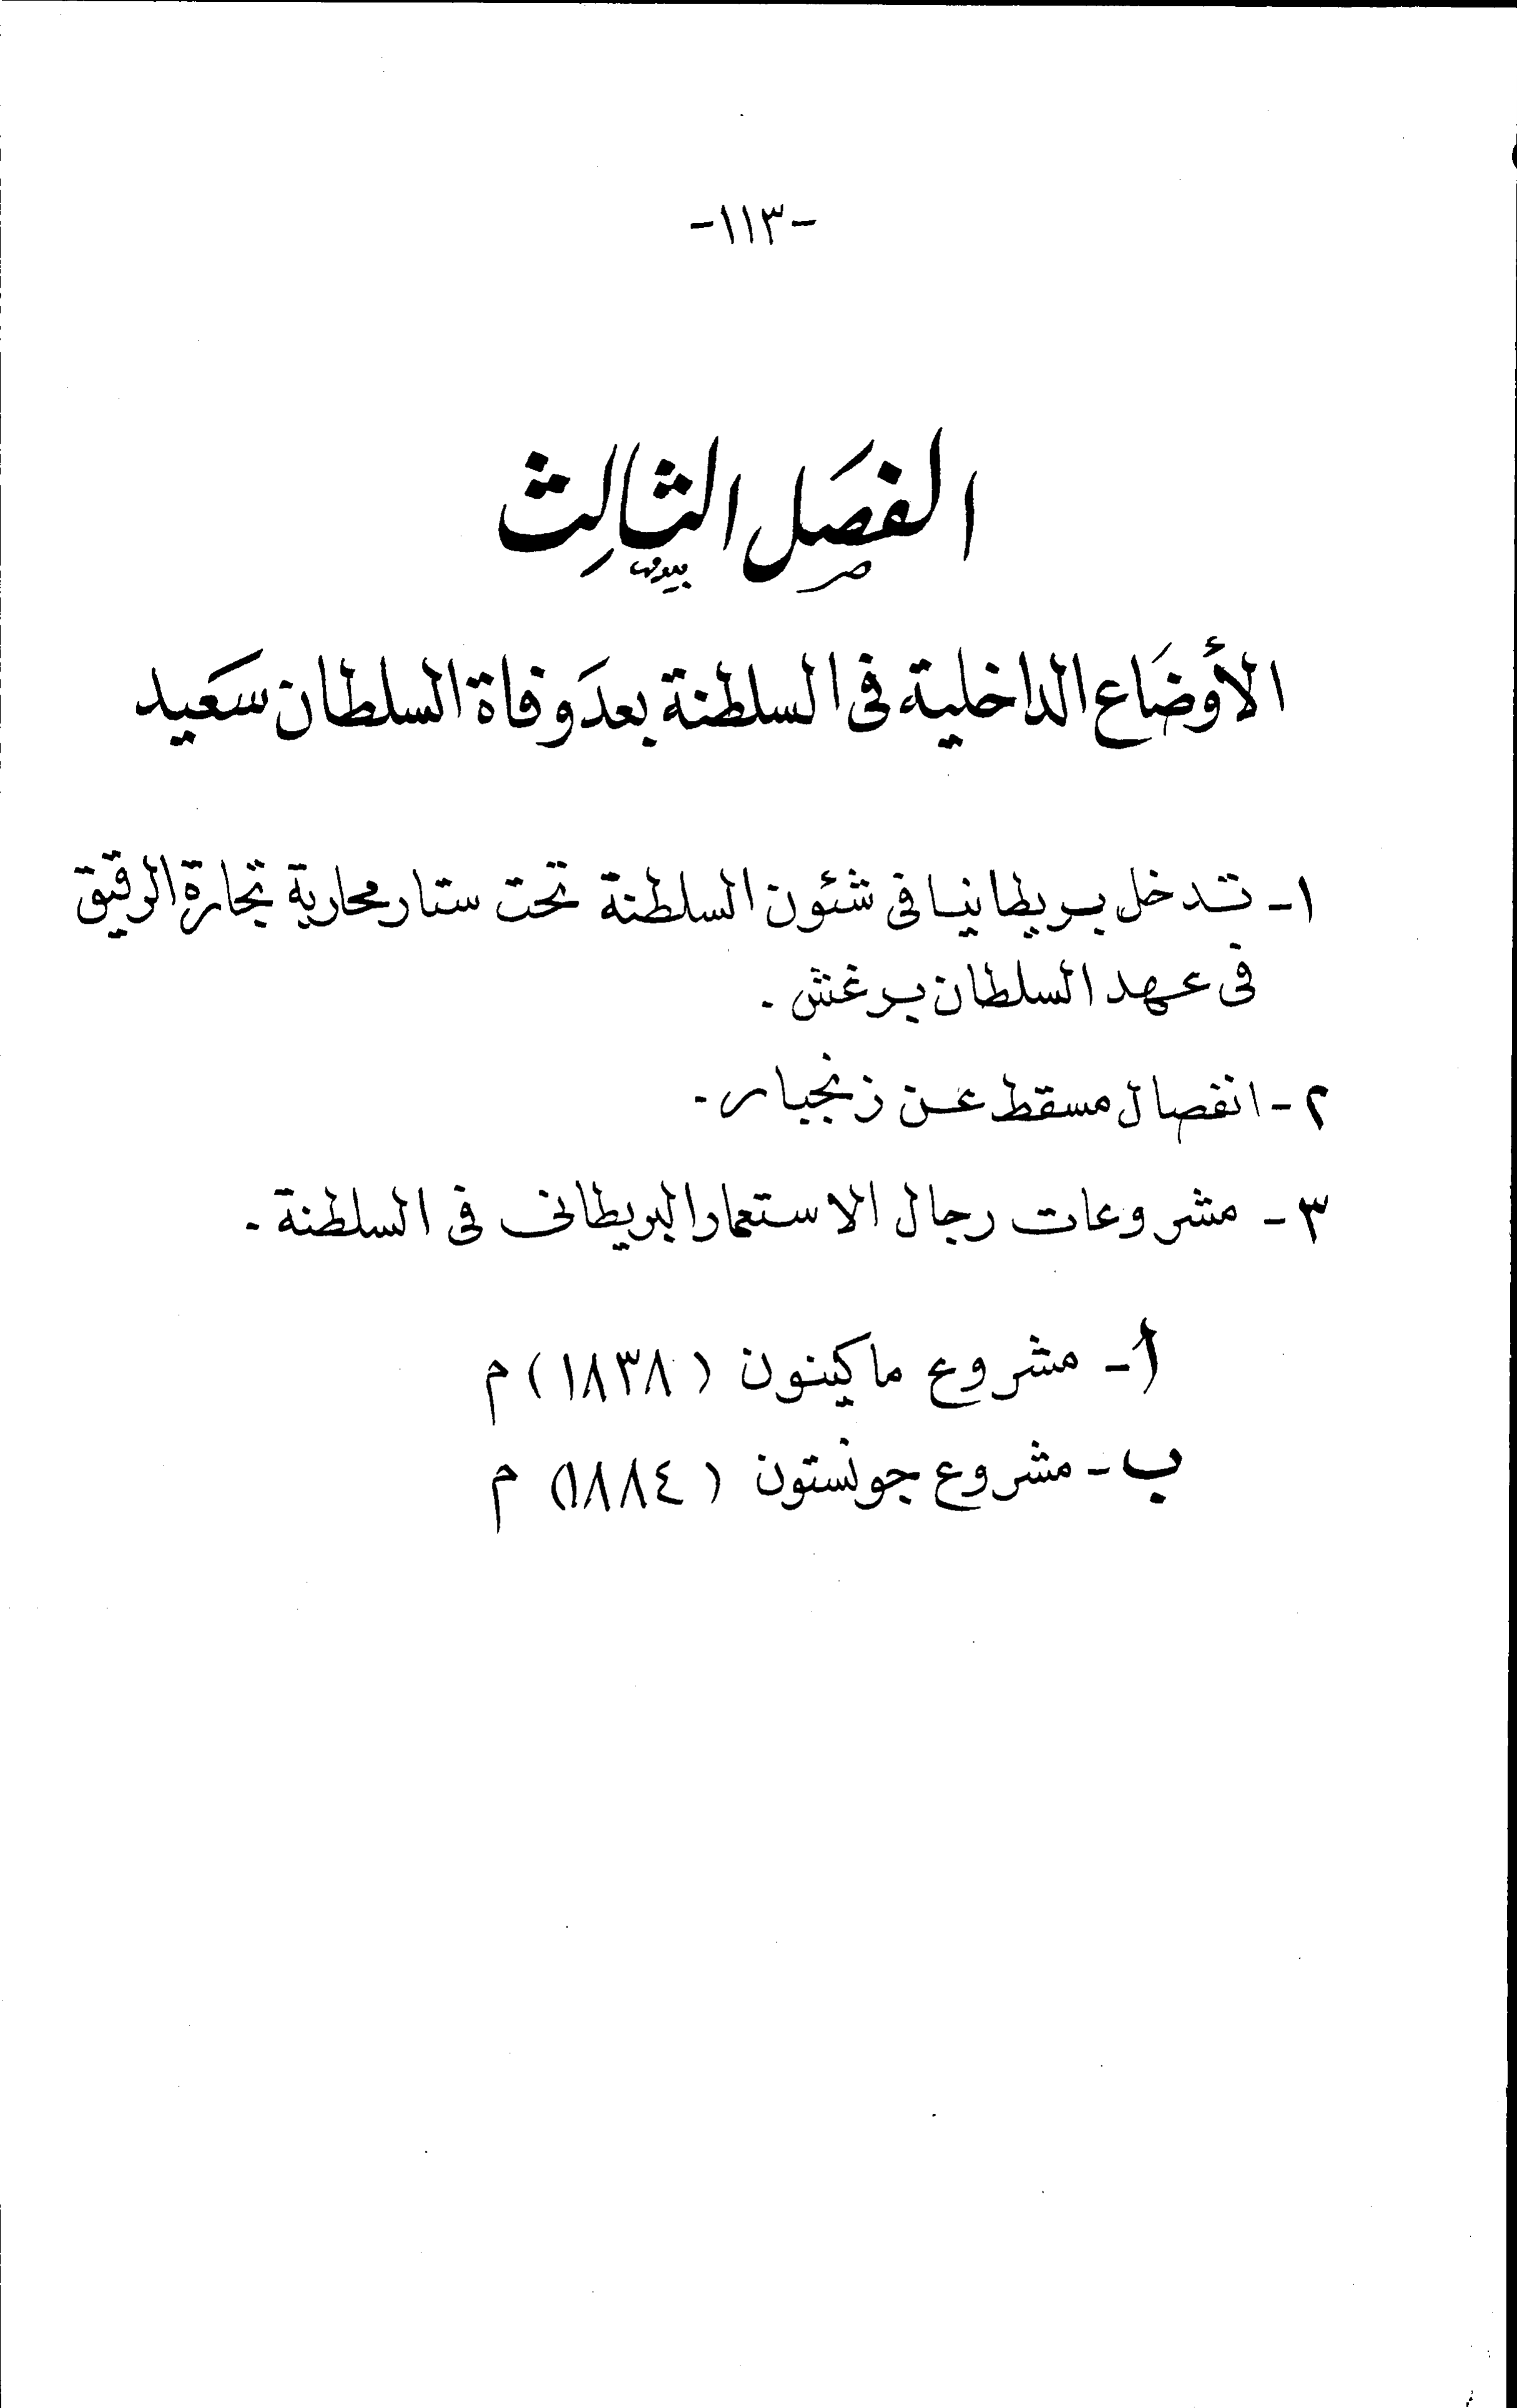 -١١٣-
الفصَل الثالث
الأوضَاع الداخلية فى السلطنة بعدَ وفاة السلطان سَعيد
١- تدخل بريطانيا فى شئون السلطنة تحت ستار محاربة تجارة الرقيق
فى عهد السلطان برغش .
٢- انفصال مسقط عن زنجبار .
٣- مشروعات رجال الاستعمار البريطانى فى السلطنة .
أ- مشروع ماكينون (١٨٣٨) م
ب- مشروع جونستون (١٨٨٤) م